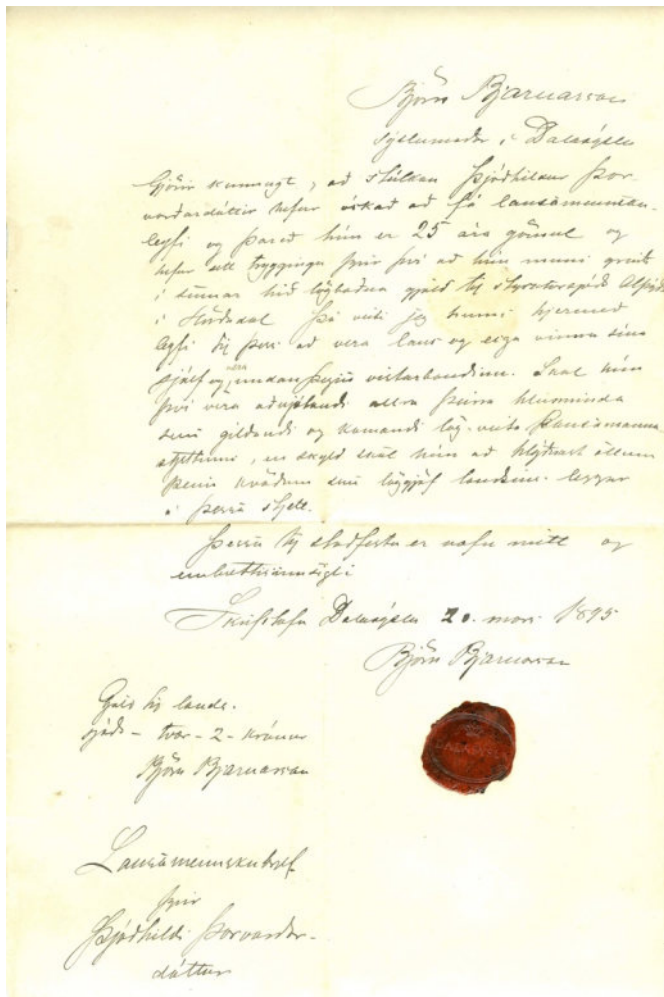 Björn Bjarnarson
sýslumaður í Dalasýslu
Gjörir kunnugt, að stúlkan Þjóðhildur Þor-
varðardóttir hefur óskað að fá lausamennsku-
leyfi og þareð hún er 25 ára gömul og
hefur sett tryggingu fyrir því að hún muni greiða
í sinnar hið lögboðna gjald til styrktarsjóðs Alþýðu
í Hörðadal Þá veiti jeg henni hjermeð
leyfi til þess að vera laus og eiga vinnu sína
sjálf og vera undan þegin vistarbandinu. Skal hún
því vera aðnjótandi allra þeirra hlunninda
sem gildandi og komandi lög veita lausamanna-
stjettinni, en skyld skal hún að hlýðnast öllum
þeim kvöðum sem löggjöf landsins leggur
á þessa stjett.
Þessu til staðfestu er nafn mitt og
embættisinnsigli
Dalasýslu 20. mars 1895
Björn Bjarnarson
DALASÝSLA
Gjald til lands-
sjóðs - tvær - 2 - krónur
Björn Bjarnarson
Lausamennskubrjef
fyrir
Þjóðhildi Þorvarðar-
dóttur